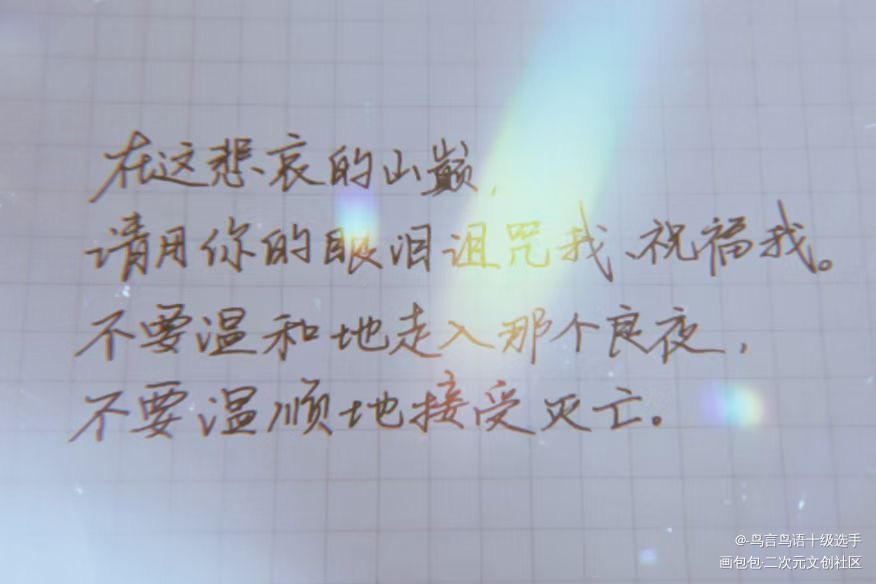 在这悲哀的山巅,
请用你的眼泪诅咒我、祝福我。
不要温和地走入那个良夜,
不要温顺地接受灭亡。
@-鸟言鸟语十级选手
画包包·二次元文创社区